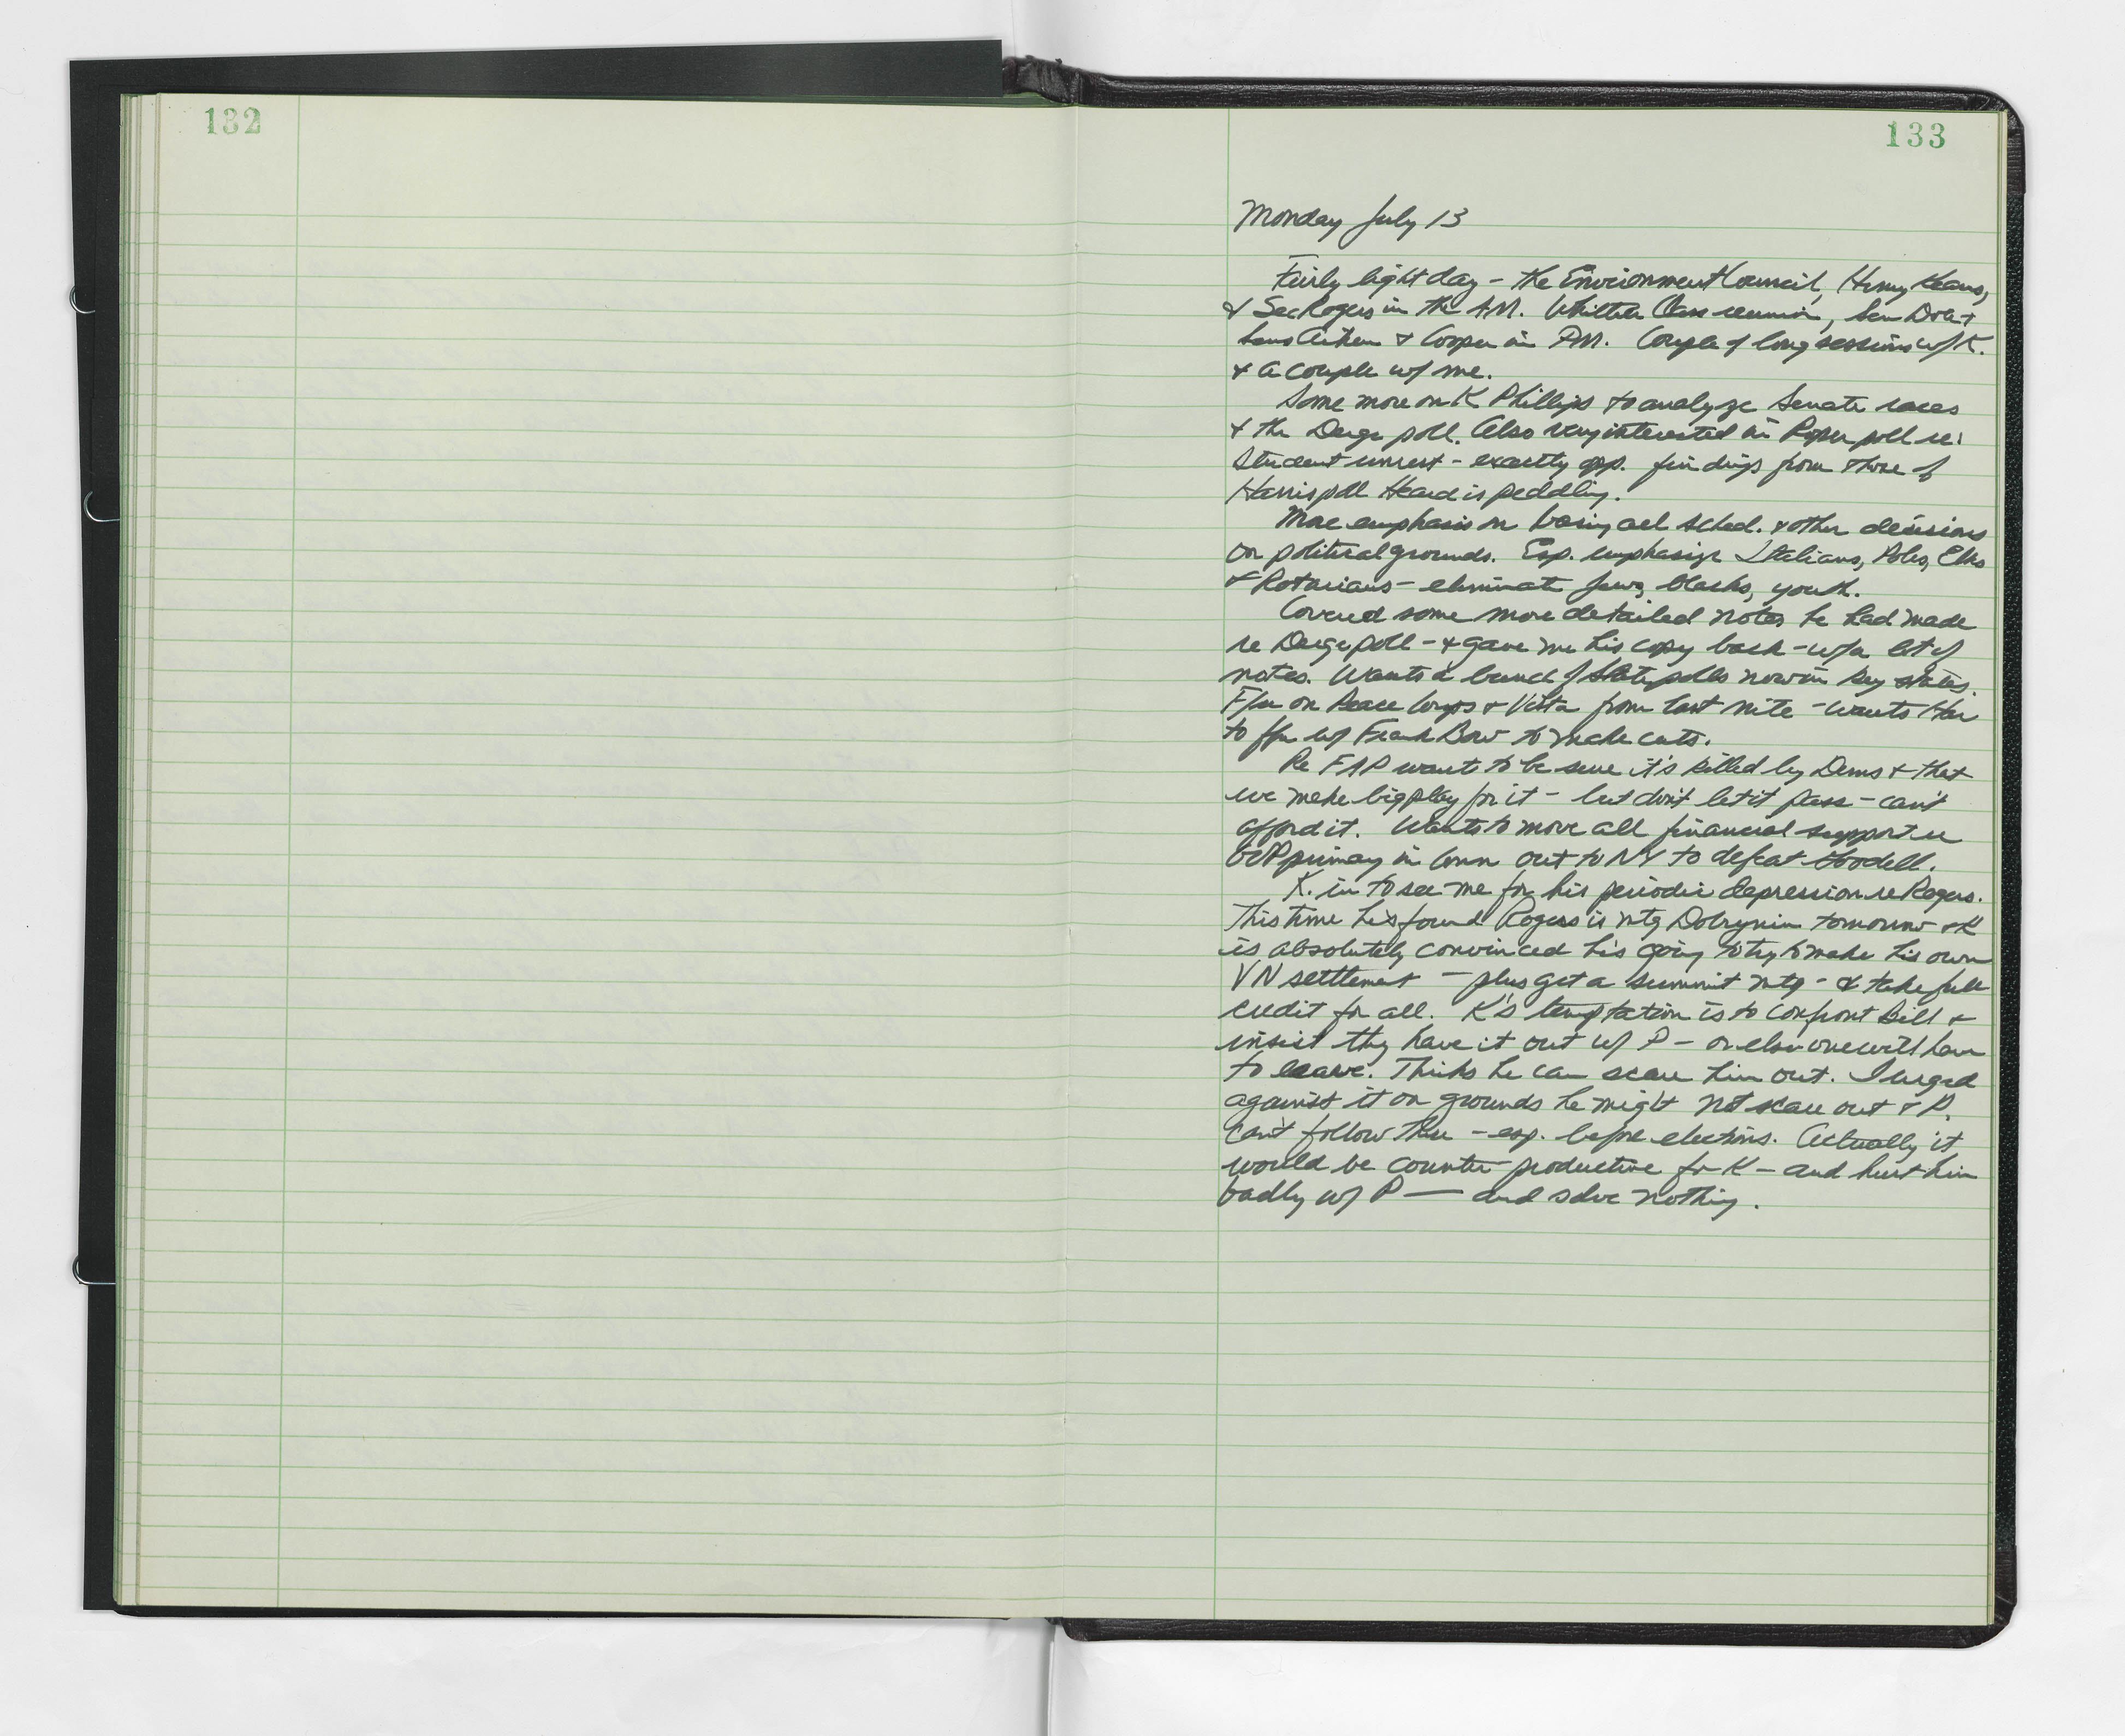 132
133
Monday July 13
Fairly light day - the Environment Council, Henry Kearns,
& Sec Rogers in the AM. Whittier Class reunion, Sen Dole &
Sens Aiken & Cooper in PM. Couple of long sessions w/ K.
& a couple w/ me.
Some more on K Phillips to analyze Senate races
& the Derge poll. Also very interested in Roper poll re:
student unrest - exactly opp. findings from those of
Harris poll Heard is peddling.
More emphasis on basing all sched. & other decisions
on political grounds. Esp. emphasize Italians, Poles, Elks
& Rotarians - eliminate Jews, blacks, youth.
Covered some more detailed notes he had made
re Derge poll - & gave me his copy back - w/a lot of
notes. Wants a bunch of State polls now in key states.
F/u on Peace Corps & Vista from last nite - wants Har
to f/u w/ Frank Bow to make cuts.
Re FAP want to be sure it's killed by Dems & that
we make big play for it - but don't let it pass - can't
afford it. Wants to move all financial support re
GOP primary in Conn out to NY to defeat Goodell.
K. in to see me for his periodic depression re Rogers.
This time he's found Rogers is mtg Dobrynin tomorrow & K
is absolutely convinced he's going to try to make his own
VN settlement - plus get a summit mtg - & take full
credit for all. K's temptation is to confront Bill &
insist they have it out w/ P - or else one will have
to leave. Thinks he can scare him out. I urged
against it on grounds he might not scare out & P.
can't follow thru - esp. before elections. Actually it
would be counter productive for K - and hurt him
badly w/ P — and solve nothing.